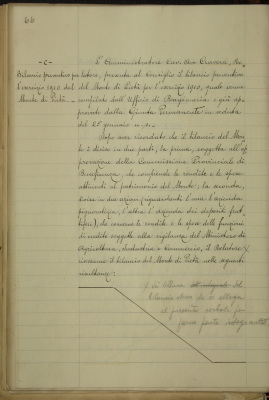 66
- c -
Bilancio preventivo per
l'esercizio 1910 del
Monte di Pietà.
L'Amministratore Cav.
latore, presenta al Consiglio il bilancio preventivo
del Monte di Pietà per l'esercizio 1910, quale venne
compilato dall'Ufficio di Ragioneria e già ap-
provato dalla Giunta Permanente in seduta
del 28 gennaio u. s.
Dopo aver ricordato che il bilancio del Mon-
te è diviso in due parti, la prima, soggetta all'ap-
provazione della Commissione Provinciale di
Beneficenza, che comprende le rendite e le spese
attinenti al patrimonio del Monte; la seconda,
divisa in due sezioni (riguardanti l'una l'azienda
pignoratizia, l'altra l'azienda dei depositi frut-
tiferi), che concerne le rendite e le spese della funzione
di credito soggetta alla vigilanza del Ministero di
Agricoltura, Industria e Commercio, il Relatore
riassume il bilancio del Monte di Pietà nelle seguenti
risultanze:
del
bilancio stesso che si allega
al presente verbale per
farne parte integrante